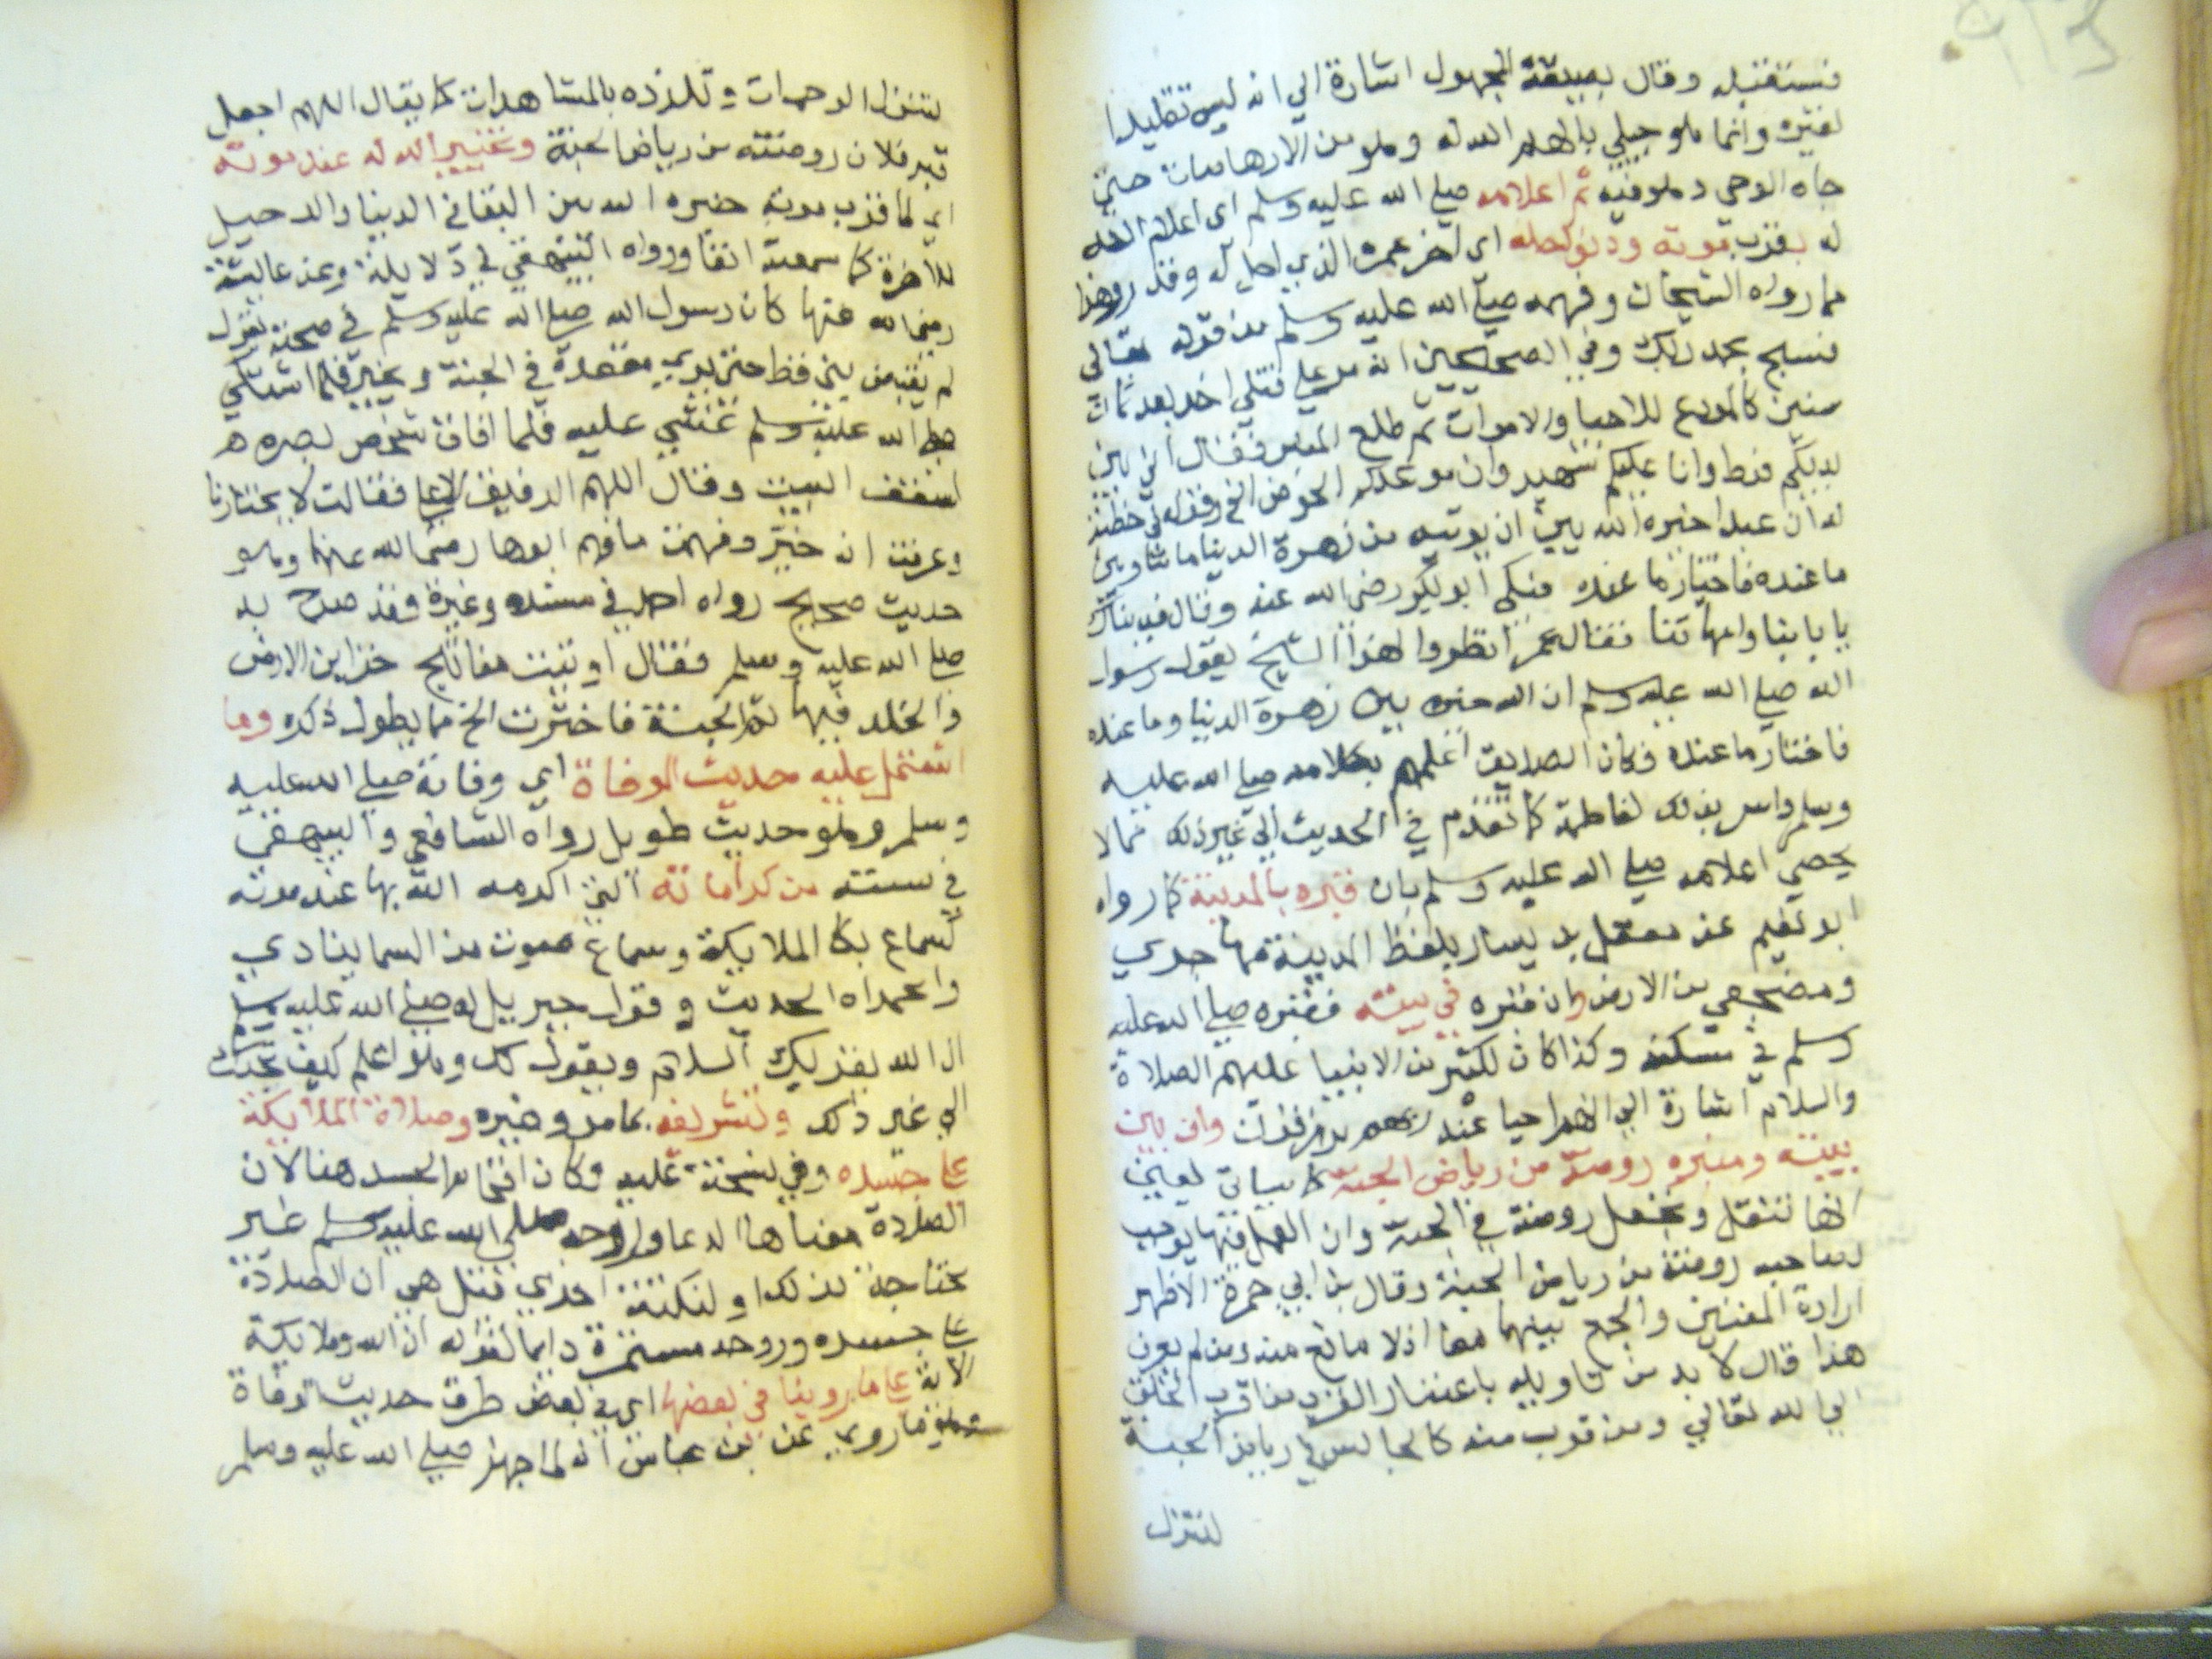 فستقتبله وقال بصيغة المجهول اشارة الي انه ليس تقليدا
لغيره وانما هو جبلي بالهام الله له وهو من الارهاصات حتي
جاه الوحي وهو فيه ثم اعلامه صلي الله عليه وسلم اي اعلام الله
له بقرب موته ودنو اجله اي اخر عمره الذي اجل له وقد روي هذا
مما رواه الشيخان وفهمه صلي الله عليه وسلم من قوله تعالي
فسبح بحمد ربك وفي الصحيحين انه صلي علي قتلي احد بعد ثمان
سنين كالمودع للاحيا والاموات ثم طلع المنبر فقال اني بين
ايديكم فرط وانا عليكم شهيد وان موعدكم الحوض الخ وقوله في خطبته
له ان عبدا خيره الله بين ان يوتيه من زهرة الدنيا ما شا وبين
ما عنده فاختار ما عنده فبكي ابو بكر رضي الله عنه وقال فديناك
يا باينا وامهاتنا فقال عمر انظروا لهذا الشيخ يقول رسول
الله صلي الله عليه وسلم ان الله خيره بين زهرة الدنيا وما عنده
فاختار ما عنده وكان الصديق اعلمهم بكلامه صلي الله عليه
وسلم واسر بذلك لفاطمة كما تقدم في الحديث الي غير ذلك مما لا
يحصي اعلامه صلي الله عليه وسلم بان قبره بالمدينة كما رواه
ابو نعيم عن معقل بن يسار بلفظ المدينة مهاجري
ومضجعي من الارض وان قبره في بيته فقبره صلي الله عليه
وسلم في مسكنه وكذا كان لكثير من الانبيا عليهم الصلاة
والسلام اشارة الي انهم احيا عند ربهم يرزقون وان بين
بيته ومنبره روضة من رياض الجنة كما سياتي يعني
انها تنقل وتجعل روضة في الجنة وان العمل فيها يوجب
لصاحبه روضة من رياض الجنة وقال بن ابي جمرة الاظهر
ارادة المعنيين والجمع بينهما معا اذ لا مانع منه ومن لم يعرف
هذا قال لا بد من تاويله باعتبار القرب
الي الله تعالي ومن قرب منه كالجالس في رياض الجنة
لتنزل
لتنزل الرحمات وتلذذه بالمشاهدات كما يقال اللهم اجعل
قبر فلان روضة من رياض الجنة وتخيير الله له عند موته
اي لما قرب موته خيره الله بين البقا في الدنيا والرحيل
للاخرة كما سمعته انفا ورواه البيهقي في دلايله وعن عايشة
رضي الله عنها كان رسول الله صلي الله عليه وسلم في صحته يقول
لم يقبض نبي قط حتي يري مقعده في الجنة ويخير فلما اشتكي
صلي الله عليه وسلم غشي عليه فلما افاق شخص بصره
لسقف البيت وقال اللهم الرفيق الاعلا فقالت لا يختارنا
وعرفت انه خير وفهمت ما فهم ابوها رضي الله عنها وهو
حديث صحيح رواه احمد في مسنده وغيره فقد صرح به
صلي الله عليه وسلم فقال اوتيت مفاتيح خزاين الارض
والخلد فيها ثم الجنة فاخترت الخ مما يطول ذكره وما
اشتمل عليه حديث الوفاة اي وفاته صلي الله عليه
وسلم وهو حديث طويل رواه الشافعي والبيهقي
في سننه من كراماته التي اكرمه الله بها عند موته
كسماع بكا الملايكة وسماع صوت من السما ينادي
وامحمداه الحديث وقول جبريل له صلي الله عليه وسلم
ان الله يقريك السلام ويقول لك وهو اعلم كيف تجدك
الي غير ذلك وتشريفه بما مر وغيره وصلاة الملايكة
علي جسده وفي نسخة عليه وكان اقحام الجسد هنا لان
الصلاة معناها الدعا وروحه صلي الله عليه وسلم غير
محتاجة لذلك او لنكتة اخري قيل هي ان الصلاة
علي جسده وروحه مستمرة دايما لقوله ان الله وملايكته
الاية علي ما روينا في بعضها اي في بعض طرق حديث وفاة
وهو ما روي عن بن عباس انه لما جهز صلي الله عليه وسلم